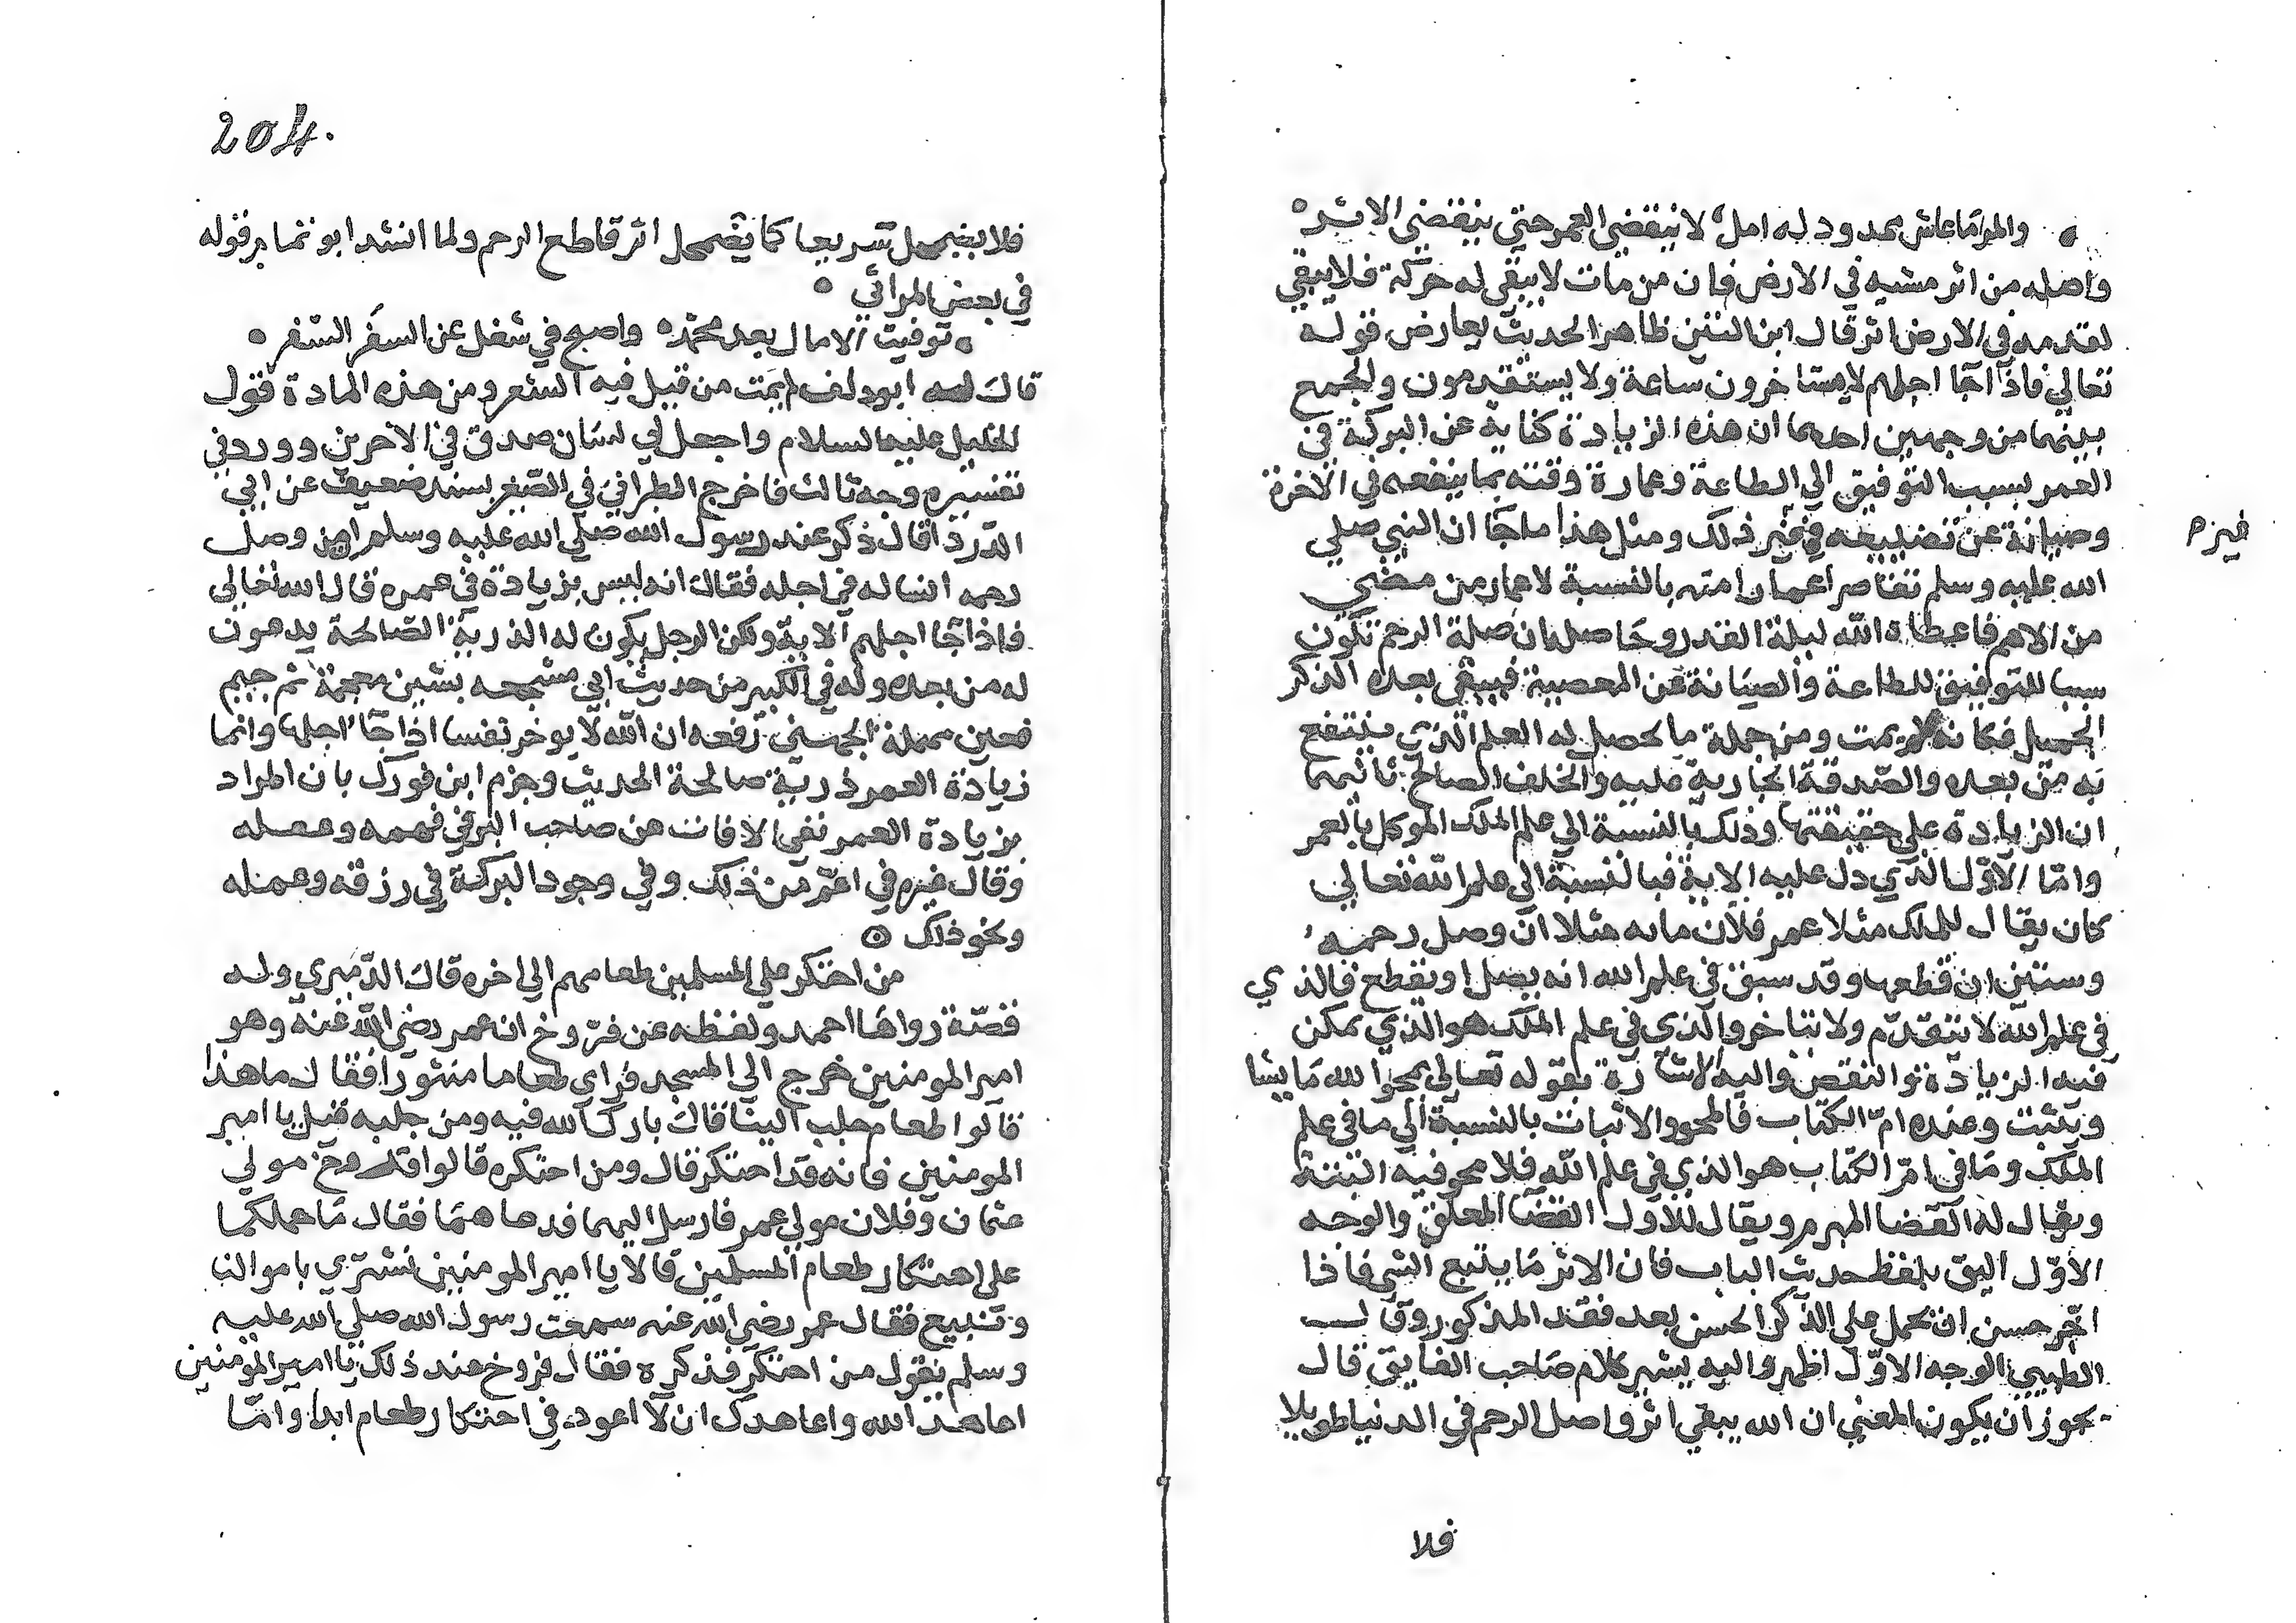 والمرء ما عاش ممدود له امل لا ينقضي العمر حتي ينقضي الاثر
واصله من اثر مشيه في الارض فان من مات لا يبقي له حركة فلا يبقي
لقدمه في الارض اثر قال ابن التين ظاهر الحديث يعارض قوله
تعالي فاذا جا اجلهم لا يستاخرون ساعة ولا يستقدمون والجمع
بينهما من وجهين احدهما ان هذه الزيادة كناية عن البركة في
العمر بسبب التوفيق الي الطاعة وعمارة وقته بما ينفعه في الاخرة
وصيانة عن تضييعه في غير ذلك ومثل هذا ما جا ان النبي صلي
غيره
الله عليه وسلم تقاصر اعمار امته بالنسبة لاعمار من مضي
من الامم فاعطاه الله ليلة القدر وحاصله ان صلة الرحم تكون
سببا للتوفيق للطاعة والصيانة عن المعصية فيبقي بعده الذكر
الجميل فكانه لم يمت ومن جملة ما يحصل له العلم الذي ينتفع
به من بعده والصدقة الجارية عليه والخلف الصالح ثانيهما
ان الزيادة علي حقيقتها وذلك بالنسبة الي علم الملك الموكل بالعمر
وامّا الاوّل الذي دل عليه الاية فبالنسبة الي علم الله تعالي
كان يقال للملك مثلا عمر فلان مايه مثلا ان وصل رحمه
وستين ان قطعها وقد سبق في علم الله انه يصل او يقطع فالذي
في علم الله لا يتقدّم ولا يتاخر والذي في علم الملك هو الذي يمكن
فيه الزيادة والنقص واليه الاشارة بقوله تعالي يمحوا الله ما يشا
ويثبت وعنده امّ الكتاب فالمحو والاثبات بالنسبة الي ما في علم
الملك وما في امّ الكتاب هو الذي في علم الله فلا محو فيه البتة
ويقال له القضا المبرم ويقال للاول القضا المعلق والوجه
الاوّل اليق بلفظ حديث الباب فان الاثر ما يتبع الشي فاذا
اخّر حسن ان يحمل علي الذكر الحسن بعد فقد المذكور وقال
الطيبي الوجه الاوّل اظهر واليه يشير كلام صاحب الفايق قال
يجوز ان يكون المعني ان الله يبقي اثر واصل الرحم في الدنيا طويلا
فلا
204.
فلا يضمحل سريعا كما يضمحل اثر قاطع الرحم ولما انشد ابو تمام قوله
في بعض المراثي
توفيت الامال بعد محمّد واصبح في شغل عن السفر السّفر
قال له ابو دلف لم يمت من قيل فيه الشعر ومن هذه المادة قول
الخليل عليه السلام واجعل لي لسان صدق في الاخرين وورد في
تفسيره وجه ثالث فاخرج الطبراني في الصّغير بسند ضعيف عن ابي
الدّردا قال ذكر عند رسول الله صلي الله عليه وسلم من وصل
رحمه انسا له في اجله فقال انه ليس بزيادة في عمره قال الله تعالي
فاذا جا اجلهم الاية ولكن الرجل يكون له الذرية الصّالحة يدعون
له من بعده وله في الكبير من حديث ابي مشجعه بشين معجمة ثم جيم
فعين مهملة الجهني رفعه ان الله لا يوخر نفسا اذا جا اجلها وانما
زيادة العمر ذرية صالحة الحديث وجزم ابن فورك بان المراد
بزيادة العمر نفي الافات عن صاحب البر في فهمه وعقله
وقال غيره في اعمّ من ذلك وفي وجود البركة في رزقه وعمله
ونحو ذلك
من احتكر علي المسلمين طعامهم الي اخره قال الدّميري وله
قصّة رواها احمد ولفظه عن فرّوخ ان عمر رضي الله عنه وهو
امير المومنين خرج الي المسجد فراي طعاما منثورا فقال ما هذا
قالوا طعام جلب الينا قال بارك الله فيه ومن جلبه قيل يا امير
المومنين فانه قد احتكر قال ومن احتكره قالوا فروخ مولي
عثمان وفلان مولي عمر فارسل اليهما فدعاهما فقال ما حملكما
علي احتكار طعام المسلمين قالا يا امير المومنين نشتري باموالنا
ونبيع فقال عمر رضي الله عنه سمعت رسول الله صلي الله عليه
وسلم يقول من احتكر فذكره فقال فروخ عند ذلك يا امير المومنين
اعاهد الله واعاهدك ان لا اعود في احتكار طعام ابدا وامّا